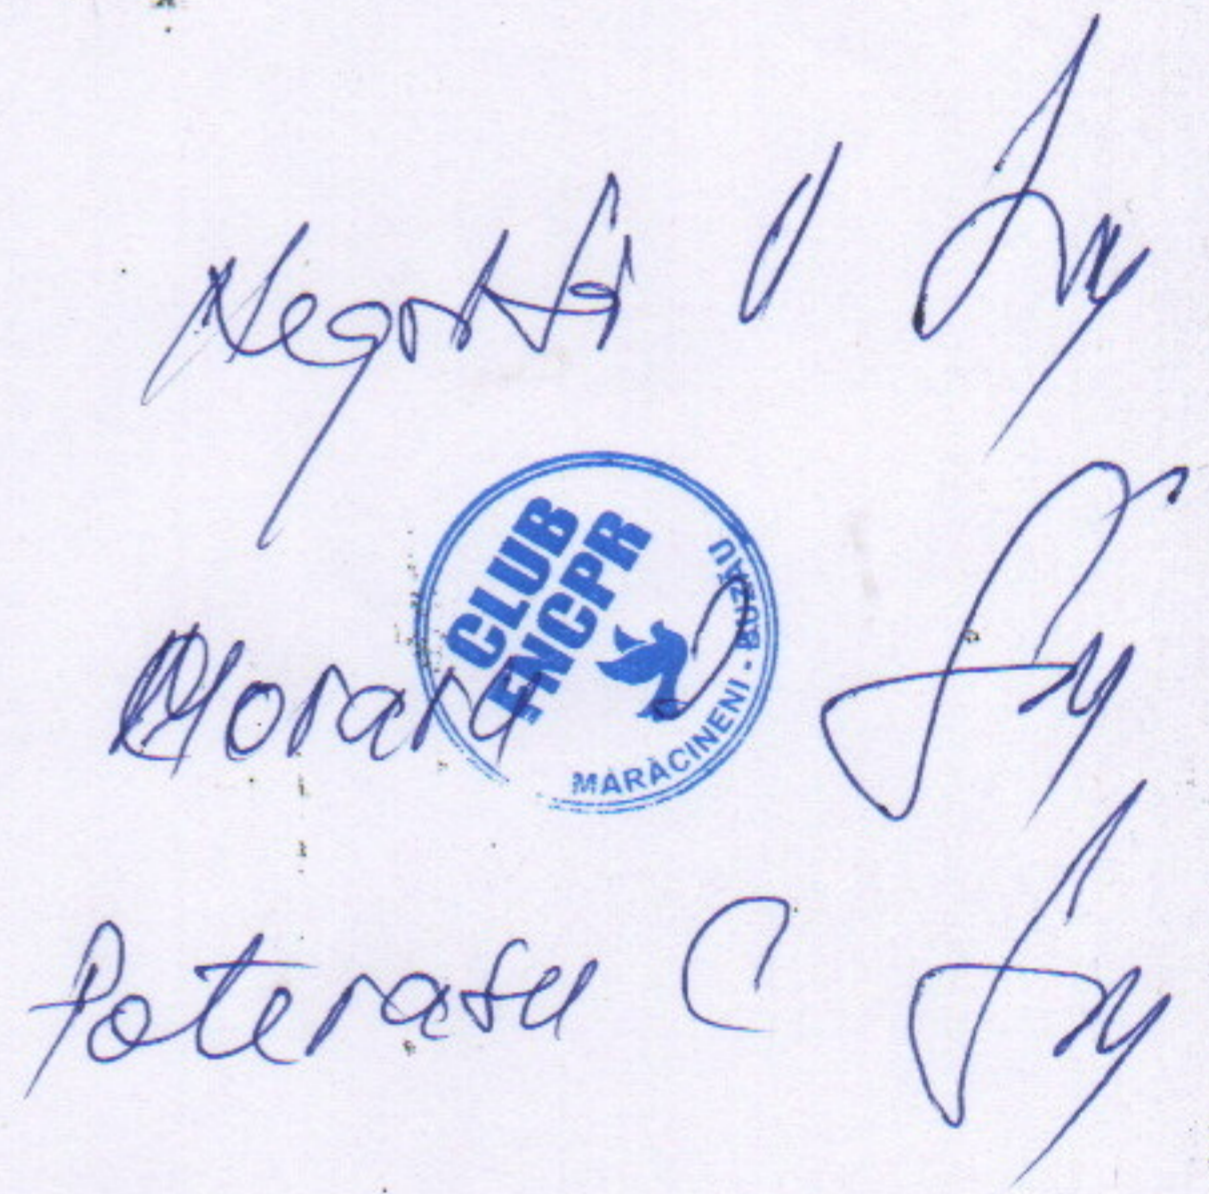 Negoita V
CLUB
FNCPR
MĂRĂCINENI - BUZĂU
Moraru
Poterasu C